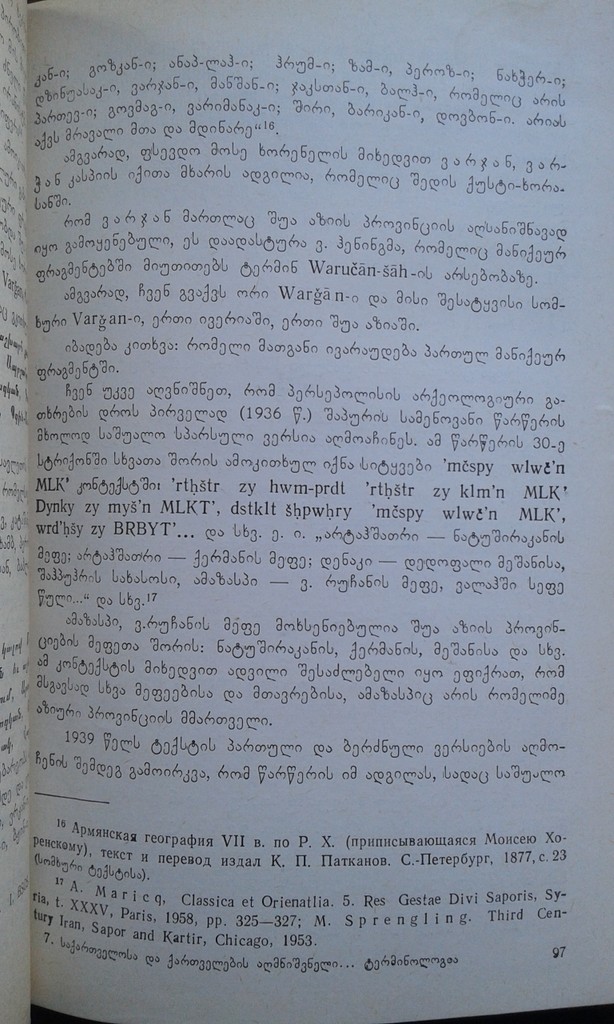 კან-ი; გოზკან-ი; ანაპ-ლაჰ-ი; ჰრუმ-ი; ზამ-ი, პეროზ-ი; ნახჭერ-ი;
დზინუასაკ-ი, ვარჯან-ი, მანშან-ი; ჯაკსთან-ი, ბალჰ-ი, რომელიც არის
პართევ-ი; გოვმაგ-ი, ვარიმანაკ-ი; შირი, ბარიკან-ი, დოვბონ-ი. არიას
აქვს მრავალი მთა და მდინარე“16.
ამგვარად, ფსევდო მოსე ხორენელის მიხედვით ვარჯან, ვარ-
ჭან კასპიის იქითა მხარის ადგილია, რომელიც შედის ქუსტი-ხორა-
სანში.
რომ ვარჯან მართლაც შუა აზიის პროვინციის აღსანიშნავად
იყო გამოყენებული, ეს დაადასტურა ვ. ჰენინგმა, რომელიც მანიქეურ
ფრაგმენტებში მიუთითებს ტერმინ Waručān-šāh-ის არსებობაზე.
ამგვარად, ჩვენ გვაქვს ორი Warǧān-ი და მისი შესატყვისი სომ-
ხური Varǧan-ი, ერთი ივერიაში, ერთი შუა აზიაში.
იბადება კითხვა: რომელი მათგანი ივარაუდება პართულ მანიქეურ
ფრაგმენტში.
ჩვენ უკვე აღვნიშნეთ, რომ პერსეპოლისის არქეოლოგიური გა-
თხრების დროს პირველად (1936 წ.) შაპურის სამენოვანი წარწერის
მხოლოდ საშუალო სპარსული ვერსია აღმოაჩინეს. ამ წარწერის 30-ე
სტრიქონში სხვათა შორის ამოკითხულ იქნა სიტყვები 'mčspy wlwč'n
MLK' კონტექსტში: 'rtḥštr zy hwm-prdt 'rtḥštr zy klm'n MLK'
Dynky zy myš'n MLKT', dstklt šḥpwḥry 'mčspy wlwč'n MLK',
wrd'ḥšy zy BRBYT'... და სხვ. ე. ი. „არტაჰშათრი — ნატუშირაკანის
მეფე; არტაჰშათრი — ქერმანის მეფე; დენაკი — დედოფალი მეშანისა,
შაჰპუჰრის სახასოსი, ამაზასპი — ვ. რუჩანის მეფე, ვალაჰში სეფე
წული...“ და სხვ.17
ამაზასპი, ვ.რუჩანის მეფე მოხსენიებულია შუა აზიის პროვინ-
ციების მეფეთა შორის: ნატუშირაკანის, ქერმანის, მეშანისა და სხვ.
ამ კონტექსტის მიხედვით ადვილი შესაძლებელი იყო ეფიქრათ, რომ
მსგავსად სხვა მეფეებისა და მთავრებისა, ამაზასპიც არის რომელიმე
აზიური პროვინციის მმართველი.
1939 წელს ტექსტის პართული და ბერძნული ვერსიების აღმო-
ჩენის შემდეგ გამოირკვა, რომ წარწერის იმ ადგილას, სადაც საშუალო
16 Армянская география VII в. по Р. X. (приписывающаяся Моисею Хо-
ренскому), текст и перевод издал К. П. Патканов. С.-Петербург, 1877, с. 23
(სომხური ტექსტისა).
17 A. Maricq, Classica et Orienatlia. 5. Res Gestae Divi Saporis, Sy-
ria, t. XXXV, Paris, 1958, pp. 325—327; M. Sprengling. Third Cen-
tury Iran, Sapor and Kartir, Chicago, 1953.
7. საქართველოსა და ქართველების აღმნიშვნელი... ტერმინოლოგია
97